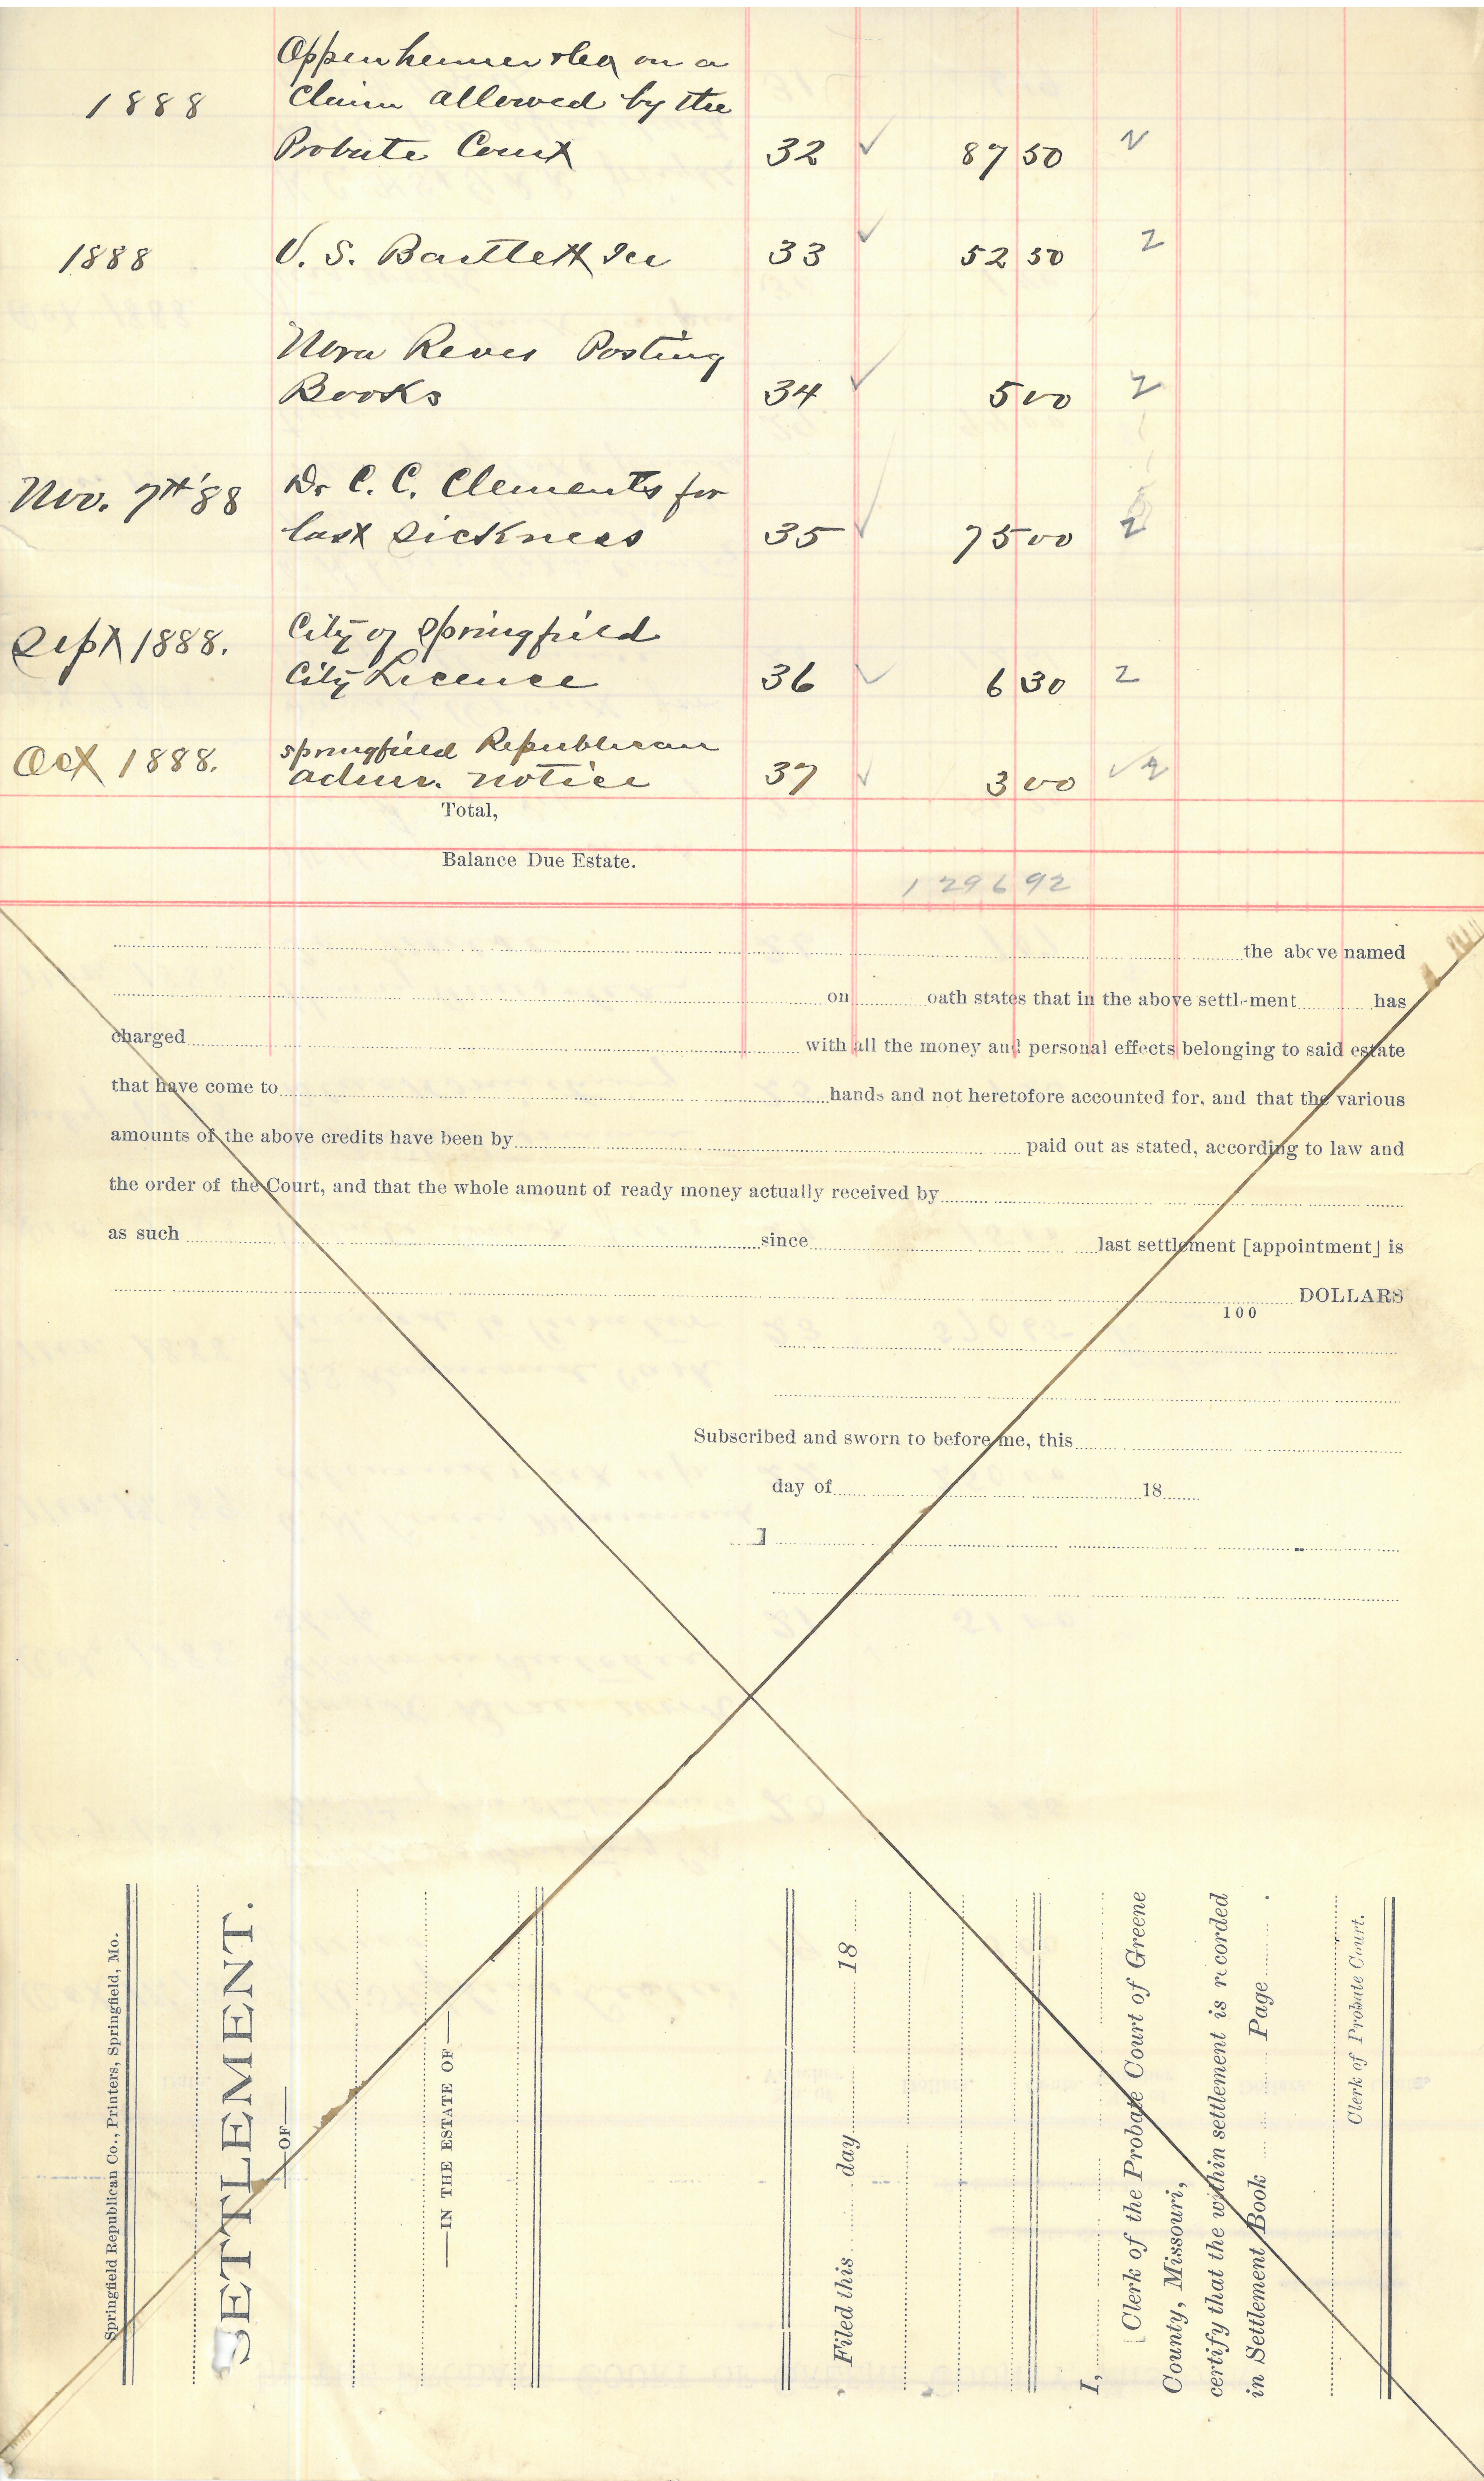 Oppenheimer & Co on a
1888 Claim allowed by the
Probate Court 32 ✓ 87 50 2
1888 V. S. Bartlett Ice 33 ✓ 52 50 2
Nora Reves Posting
Books 34 ✓ 5 00 2
Nov. 7th '88 Dr C. C. Clements for
last sickness 35 ✓ 75 00 2
Sept 1888. City of Springfield
City Licence 36 ✓ 6 30 2
Oct 1888. Springfield Republican
admr. notice 37 ✓ 3 00 ✓ 2
Total,
Balance Due Estate.
1296 92
the above named
on oath states that in the above settlement has
charged with all the money and personal effects belonging to said estate
that have come to hands and not heretofore accounted for, and that the various
amounts of the above credits have been by paid out as stated, according to law and
the order of the Court, and that the whole amount of ready money actually received by
as such since last settlement [appointment] is
DOLLARS
100
Subscribed and sworn to before me, this
day of 18
]
Springfield Republican Co., Printers, Springfield, Mo.
SETTLEMENT.
—OF—
—IN THE ESTATE OF—
Filed this day 18
I,
Clerk of the Probate Court of Greene
County, Missouri,
certify that the within settlement is recorded
in Settlement Book Page .
Clerk of Probate Court.